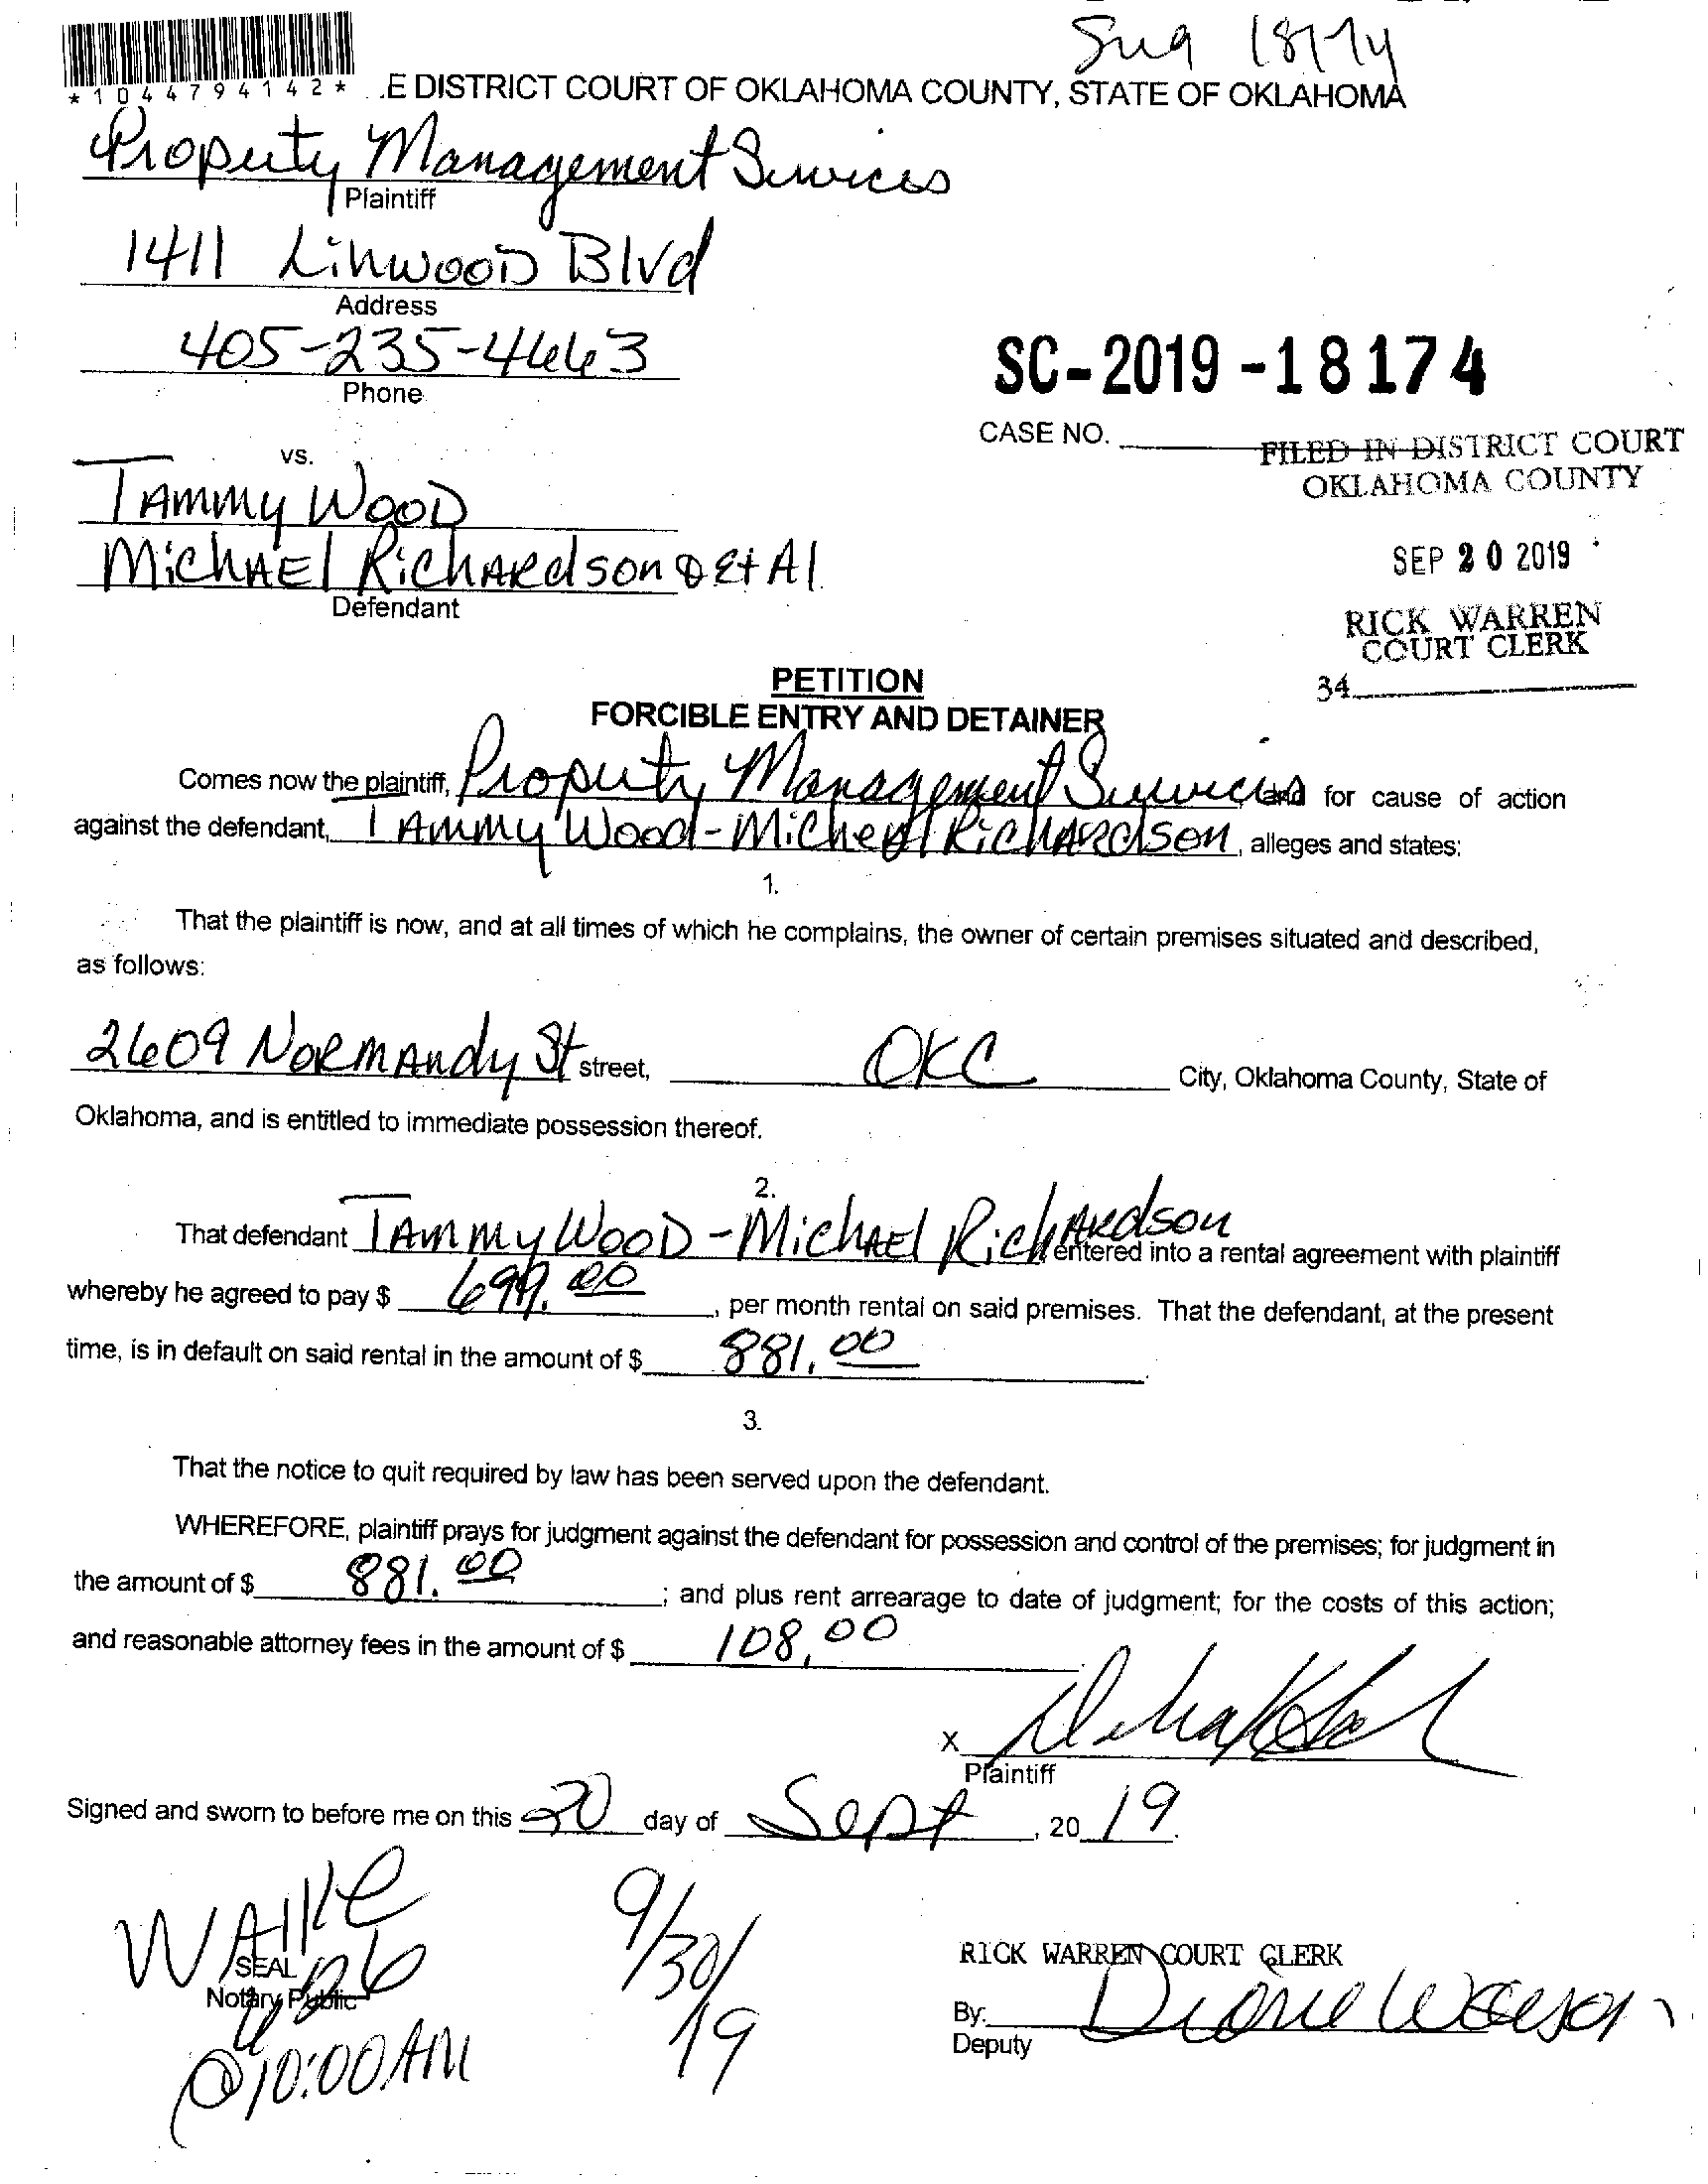 *1044794142*
.E DISTRICT COURT OF OKLAHOMA COUNTY, STATE OF OKLAHOMA
Property Management Services
Plaintiff
1411 Linwood Blvd
Address
405-235-4663
Phone
SC-2019-18174
CASE NO.
FILED IN DISTRICT COURT
OKLAHOMA COUNTY
vs.
TAmmy WooD
SEP 20 2019
MichAEl RichARdson & Et Al.
Defendant
RICK WARREN
COURT CLERK
34
PETITION
FORCIBLE ENTRY AND DETAINER
Comes now the plaintiff, Property Management Services and for cause of action
against the defendant, TAmmy Wood - Micheal RichARdson, alleges and states:
1.
That the plaintiff is now, and at all times of which he complains, the owner of certain premises situated and described,
as follows:
2609 NoRmAndy St street, OKC City, Oklahoma County, State of
Oklahoma, and is entitled to immediate possession thereof.
2.
That defendant TAmmy WooD - MichAEl RichARdson entered into a rental agreement with plaintiff
whereby he agreed to pay $ 699.00, per month rental on said premises. That the defendant, at the present
time, is in default on said rental in the amount of $ 881.00.
3.
That the notice to quit required by law has been served upon the defendant.
WHEREFORE, plaintiff prays for judgment against the defendant for possession and control of the premises; for judgment in
the amount of $ 881.00; and plus rent arrearage to date of judgment; for the costs of this action;
and reasonable attorney fees in the amount of $ 108.00.
X
Plaintiff
Signed and sworn to before me on this 20 day of Sept, 2019.
9/30/19
SEAL
Notary Public
@ 10:00 AM
RICK WARREN COURT CLERK
By:
Deputy